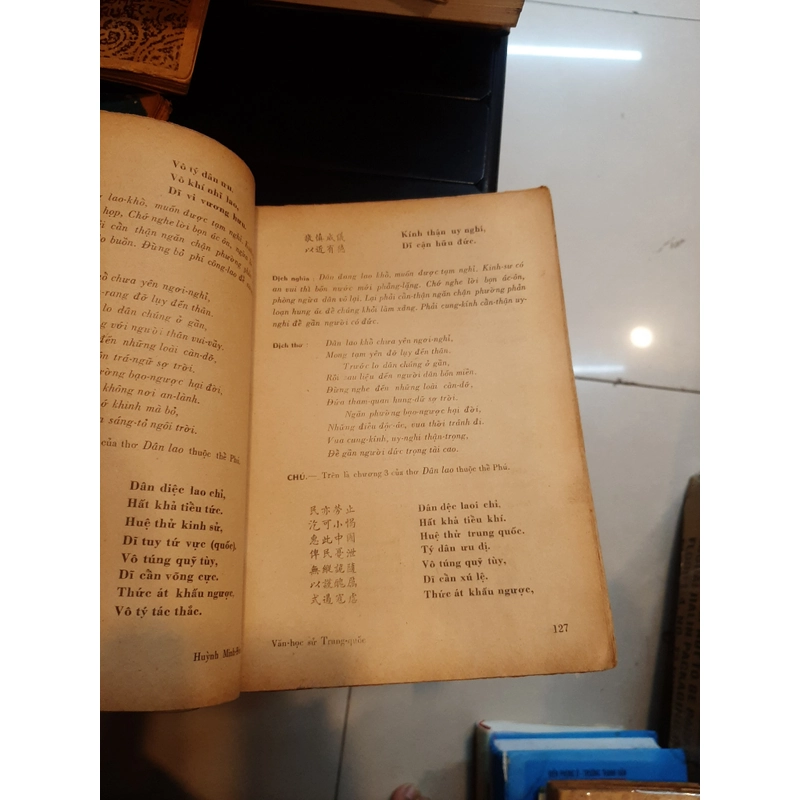 Vô tỷ dân ưu.
Vô khí nhĩ lao,
Dĩ vi vương hưu.
lao-khổ, muốn được tạm nghỉ.
họp, Chớ nghe lời bọn ác-ôn,
cần thận ngăn chận phường
lo buồn. Đừng bỏ phí công-lao để
chưa yên ngơi-nghỉ,
-rang đỡ lụy đến thân.
lo dân chúng ở gần,
với người thân vui-vầy.
đến những loài càn-dỡ.
trá-ngữ sợ trời.
bạo-ngược hại đời.
không nơi an-lành.
khinh mà bỏ,
sáng-tỏ ngôi trời.
của thơ Dân lao thuộc thể Phú.
Dân diệc lao chỉ,
Hất khả tiều tức.
Huệ thử kinh sử,
Dĩ tuy tứ vực (quốc).
Vô túng quỹ tùy,
Dĩ cần võng cực.
Thức át khấu ngược.
Vô tỷ tác thắc.
Huỳnh Minh
敬慎威儀 Kính thận uy nghi,
以近有德 Dĩ cận hữu đức.
Dịch nghĩa : Dân đang lao khổ, muốn được tạm nghỉ. Kinh-sư có
an vui thì bốn nước mới phẳng-lặng. Chớ nghe lời bọn ác-ôn,
phòng ngừa dân vô lại. Lại phải cẩn-thận ngăn chận phường phản
loạn hung ác để chúng khỏi làm xằng. Phải cung-kính cẩn-thận uy-
nghi để gần người có đức.
Dịch thơ : Dân lao khổ chưa yên ngơi-nghỉ,
Mong tạm yên đỡ lụy đến thân.
Trước lo dân chúng ở gần,
Rồi sau liệu đến người dân bốn miền.
Đừng nghe đến những loài càn-dỡ,
Đứa tham-quan hung-dữ sợ trời.
Ngăn phường bạo-ngược hại đời,
Những điều độc-ác, vua thời tránh đi.
Vua cung-kính, uy-nghi thận-trọng,
Để gần người đức trọng tài cao.
CHÚ.— Trên là chương 3 của thơ Dân lao thuộc thể Phú.
民亦勞止 Dân dệc laoi chỉ,
汔可小愒 Hất khả tiều khí.
惠此中國 Huệ thử trung quốc.
俾民憂泄 Tỷ dân ưu dị.
無縱詭隨 Vô túng quỹ tùy,
以謹醜厲 Dĩ cần xú lệ.
式遏寇虐 Thức át khấu ngược,
Văn-học sử Trung-quốc
127